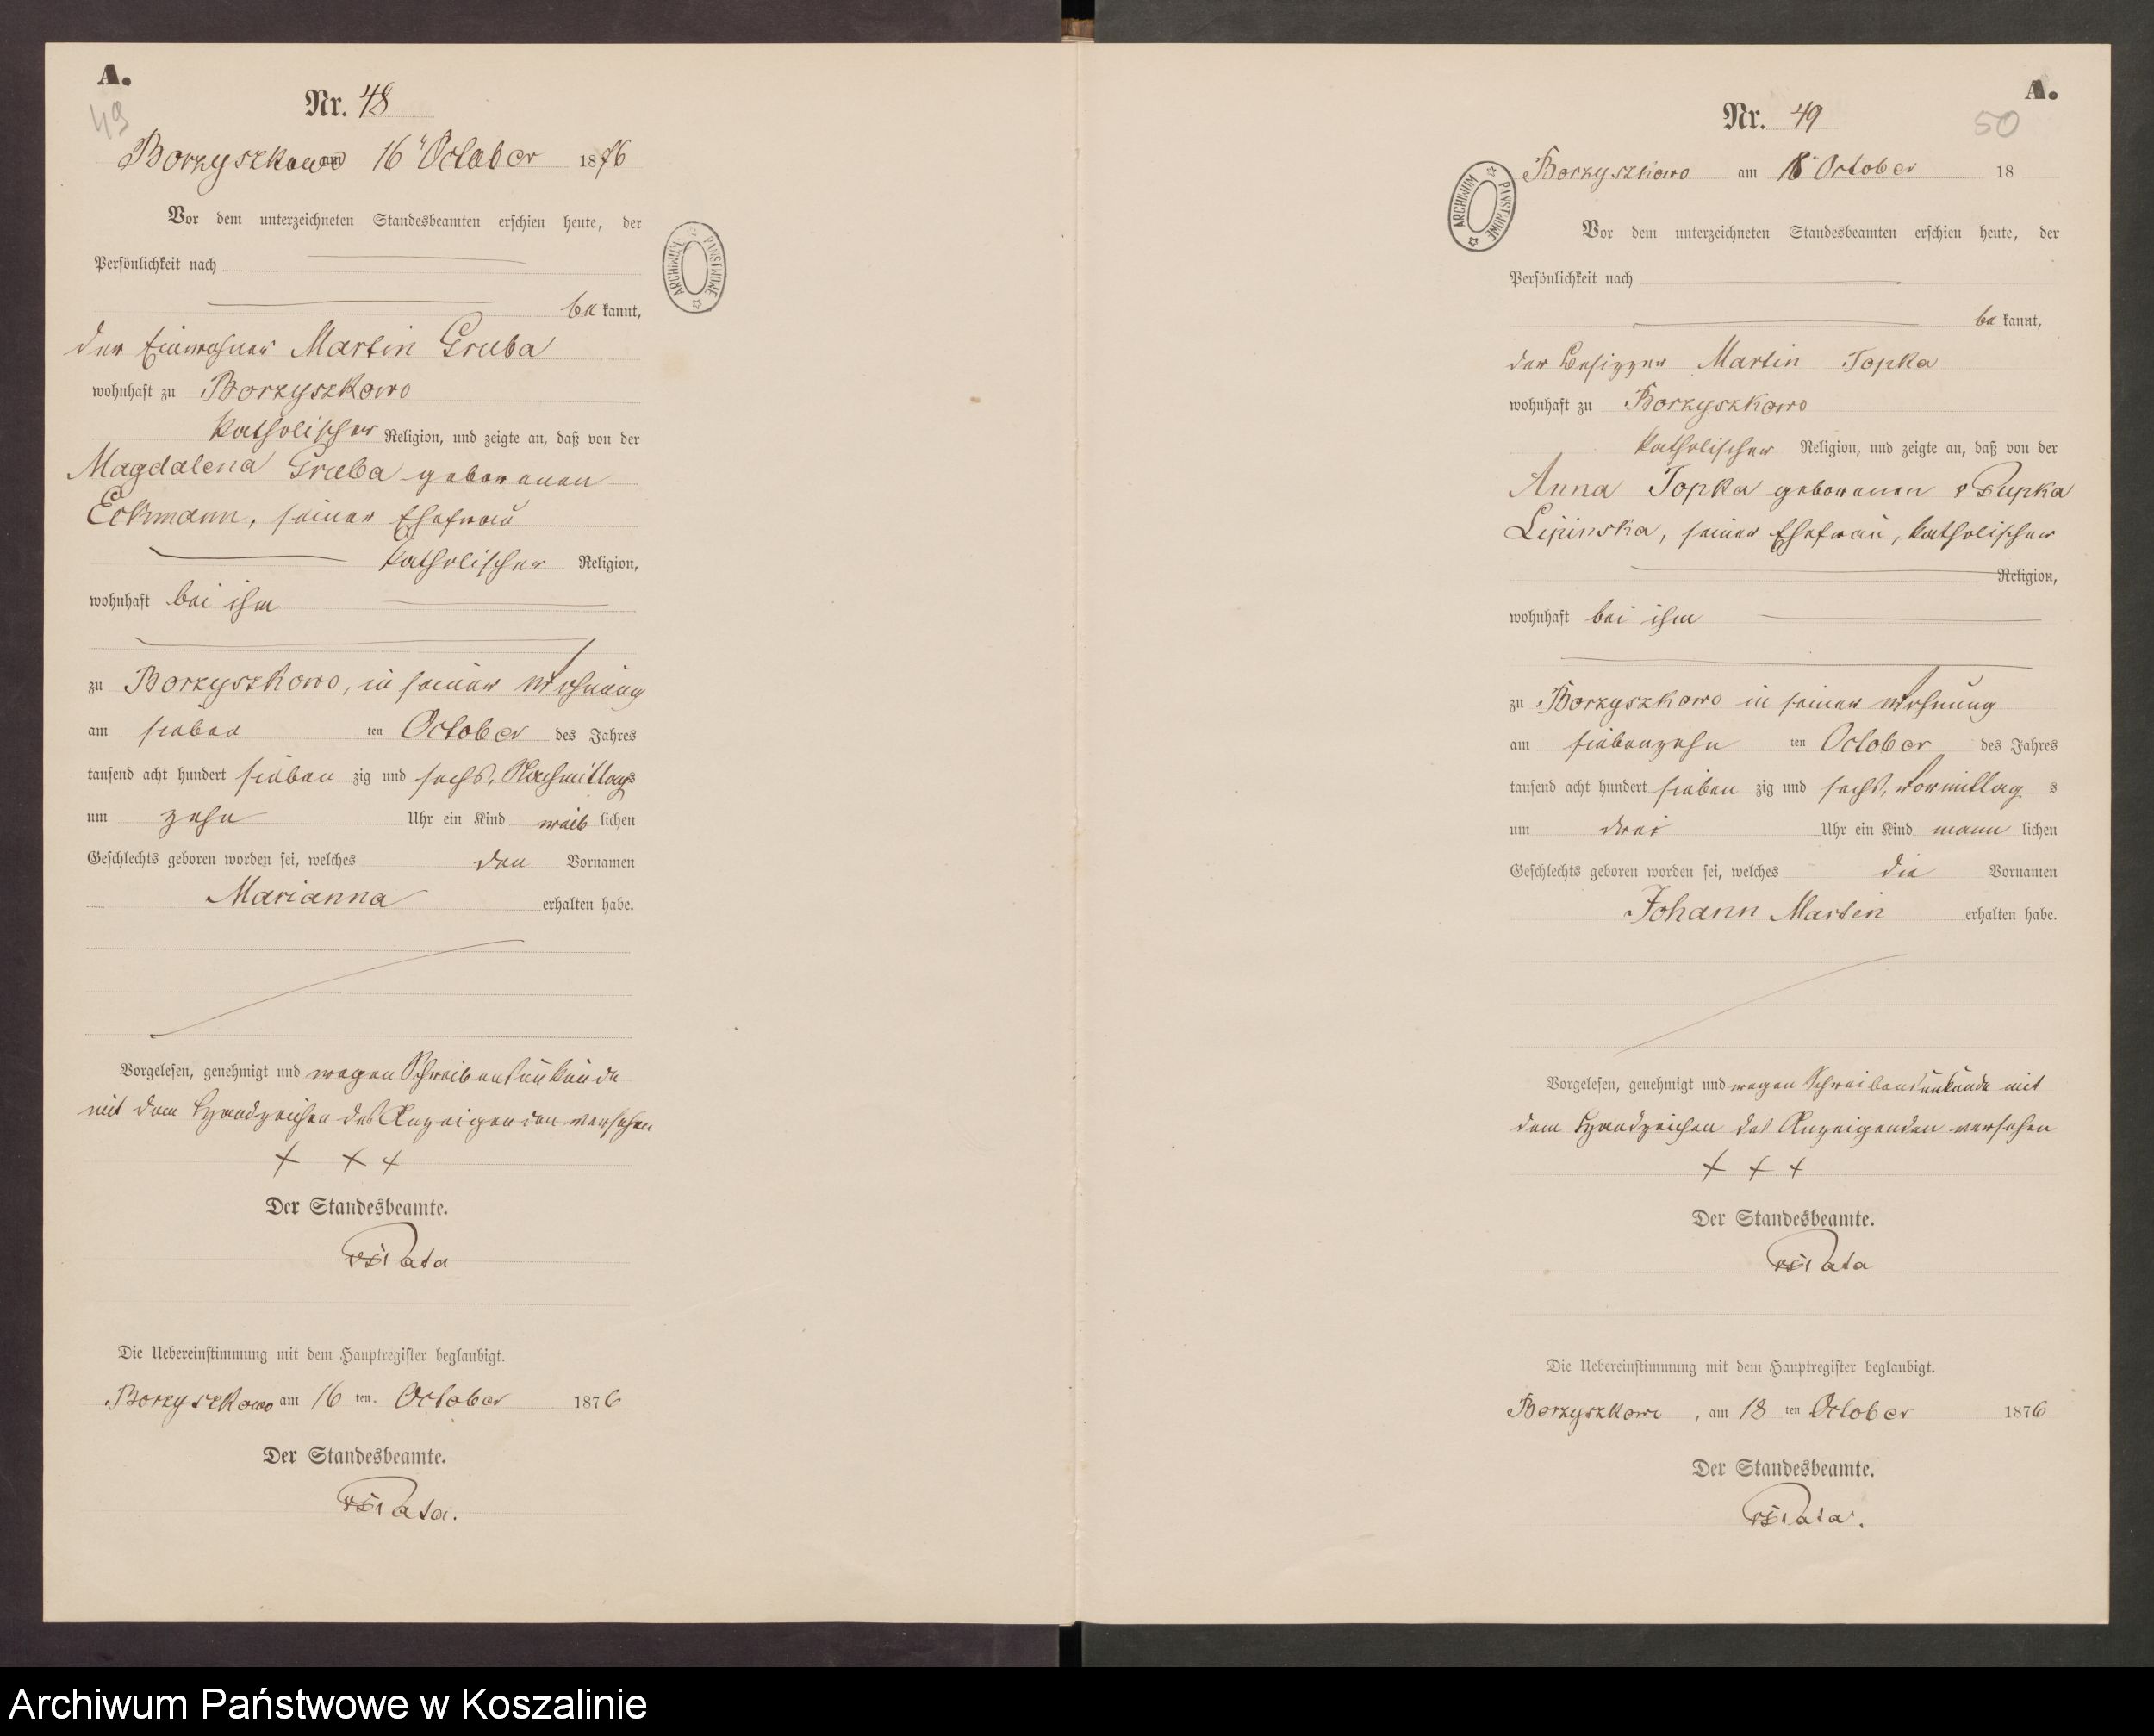 A.
49
Nr. 48
Borzyszkowo am 16t October 1876
Vor dem unterzeichneten Standesbeamten erschien heute, der
Persönlichkeit nach
be kannt,
der Einwohner Martin Gruba
wohnhaft zu Borzyszkowo
katholischer Religion, und zeigte an, daß von der
Magdalena Gruba geborenen
Eckmann, seiner Ehefrau
katholischer Religion,
wohnhaft bei ihm
zu Borzyszkowo, in seiner Wohnung
am sieben ten October des Jahres
tausend acht hundert sieben zig und sechs, Nachmittags
um zehn Uhr ein Kind weib lichen
Geschlechts geboren worden sei, welches den Vornamen
Marianna erhalten habe.
Vorgelesen, genehmigt und wegen Schreibensunkunde
mit dem Handzeichen des Anzeigenden versehen
+ + +
Der Standesbeamte.
Die Uebereinstimmung mit dem Hauptregister beglaubigt.
Borzyszkowo am 16 ten. October 1876
Der Standesbeamte.
ARCHIWUM PAŃSTWOWE
A.
50
Nr. 49
Borzyszkowo am 18 October 18
Vor dem unterzeichneten Standesbeamten erschien heute, der
Persönlichkeit nach
be kannt,
der Besitzer Martin Topka
wohnhaft zu Borzyszkowo
katholischer Religion, und zeigte an, daß von der
Anna Topka geborenen v Pupka
Lipinska, seiner Ehefrau, katholischer
Religion,
wohnhaft bei ihm
zu Borzyszkowo in seiner Wohnung
am siebenzehn ten October des Jahres
tausend acht hundert sieben zig und sechs, Vormittag s
um drei Uhr ein Kind männ lichen
Geschlechts geboren worden sei, welches die Vornamen
Johann Martin erhalten habe.
Vorgelesen, genehmigt und wegen Schreibensunkunde mit
dem Handzeichen des Anzeigenden versehen
+ + +
Der Standesbeamte.
Die Uebereinstimmung mit dem Hauptregister beglaubigt.
Borzyszkowo, am 18 ten October 1876
Der Standesbeamte.
ARCHIWUM PAŃSTWOWE
Archiwum Państwowe w Koszalinie